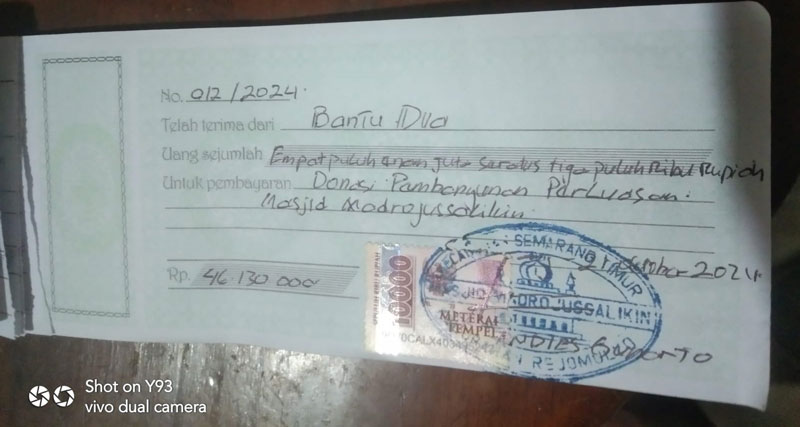 No. 012/2024.
Telah terima dari Bantu Dua
Uang sejumlah Empat puluh enam juta seratus tiga puluh Ribu Rupiah
Untuk pembayaran Donasi Pembangunan Perluasan.
Masjid Madrojussalikin.
SEMARANG TIMUR
oktober 2024
Rp. 46.130.000
10000
METERAI
TEMPEL
MASJID MADROJUSSALIKIN
REJOMULYO
Shot on Y93
vivo dual camera